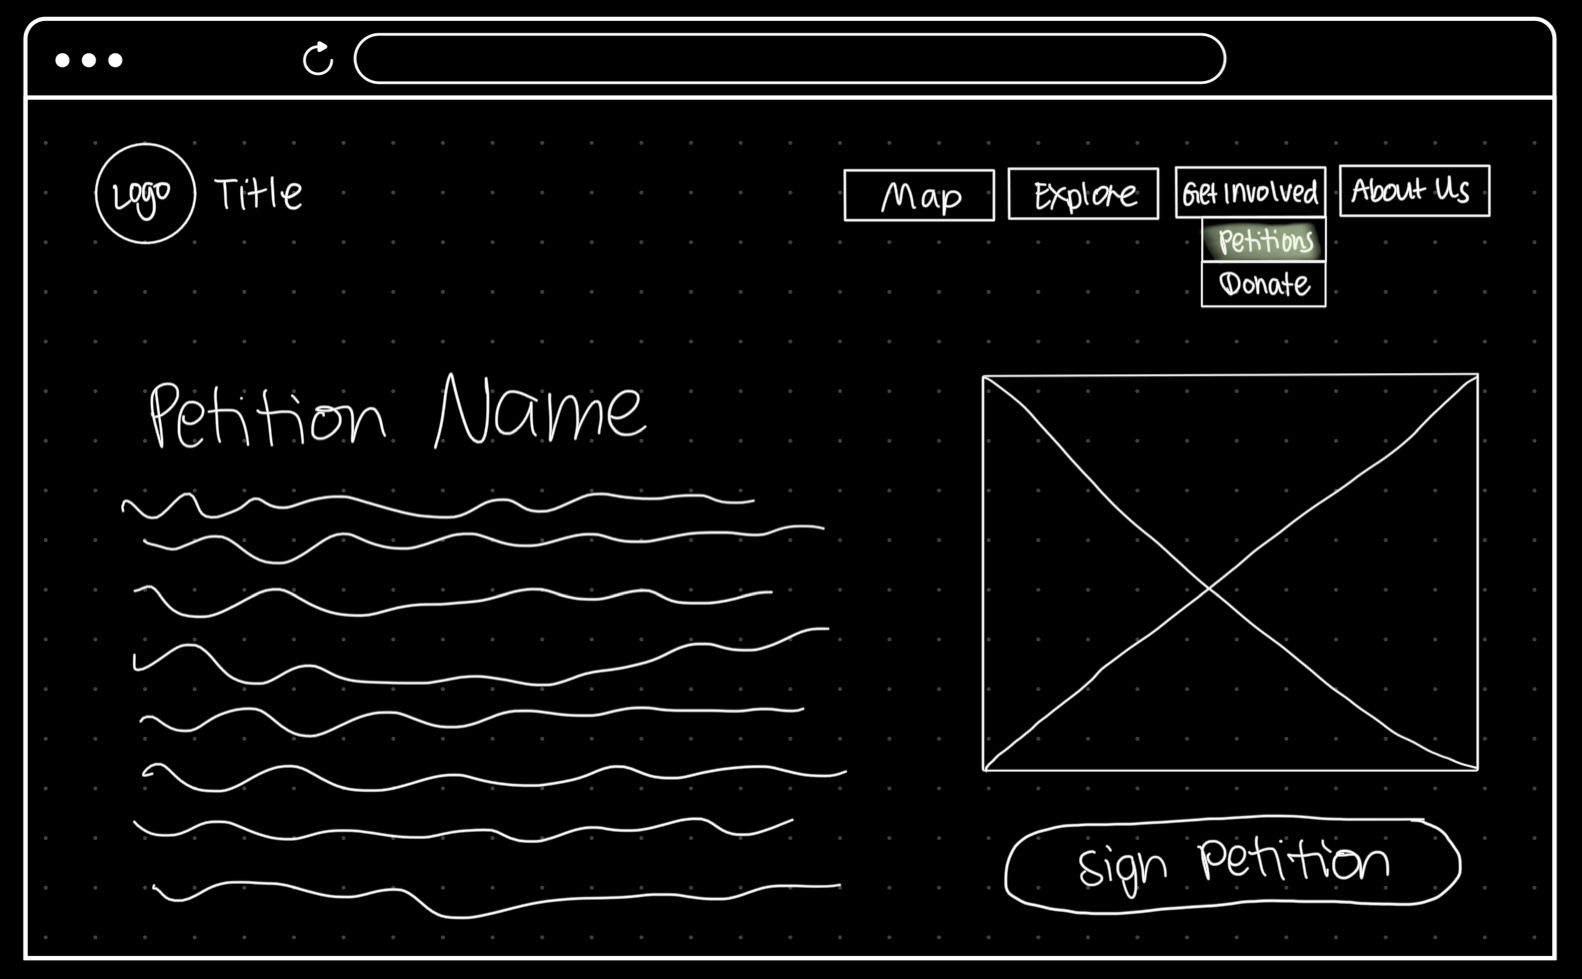 Logo Title
Map Explore Get Involved About Us
Petitions
Donate
Petition Name
Sign Petition